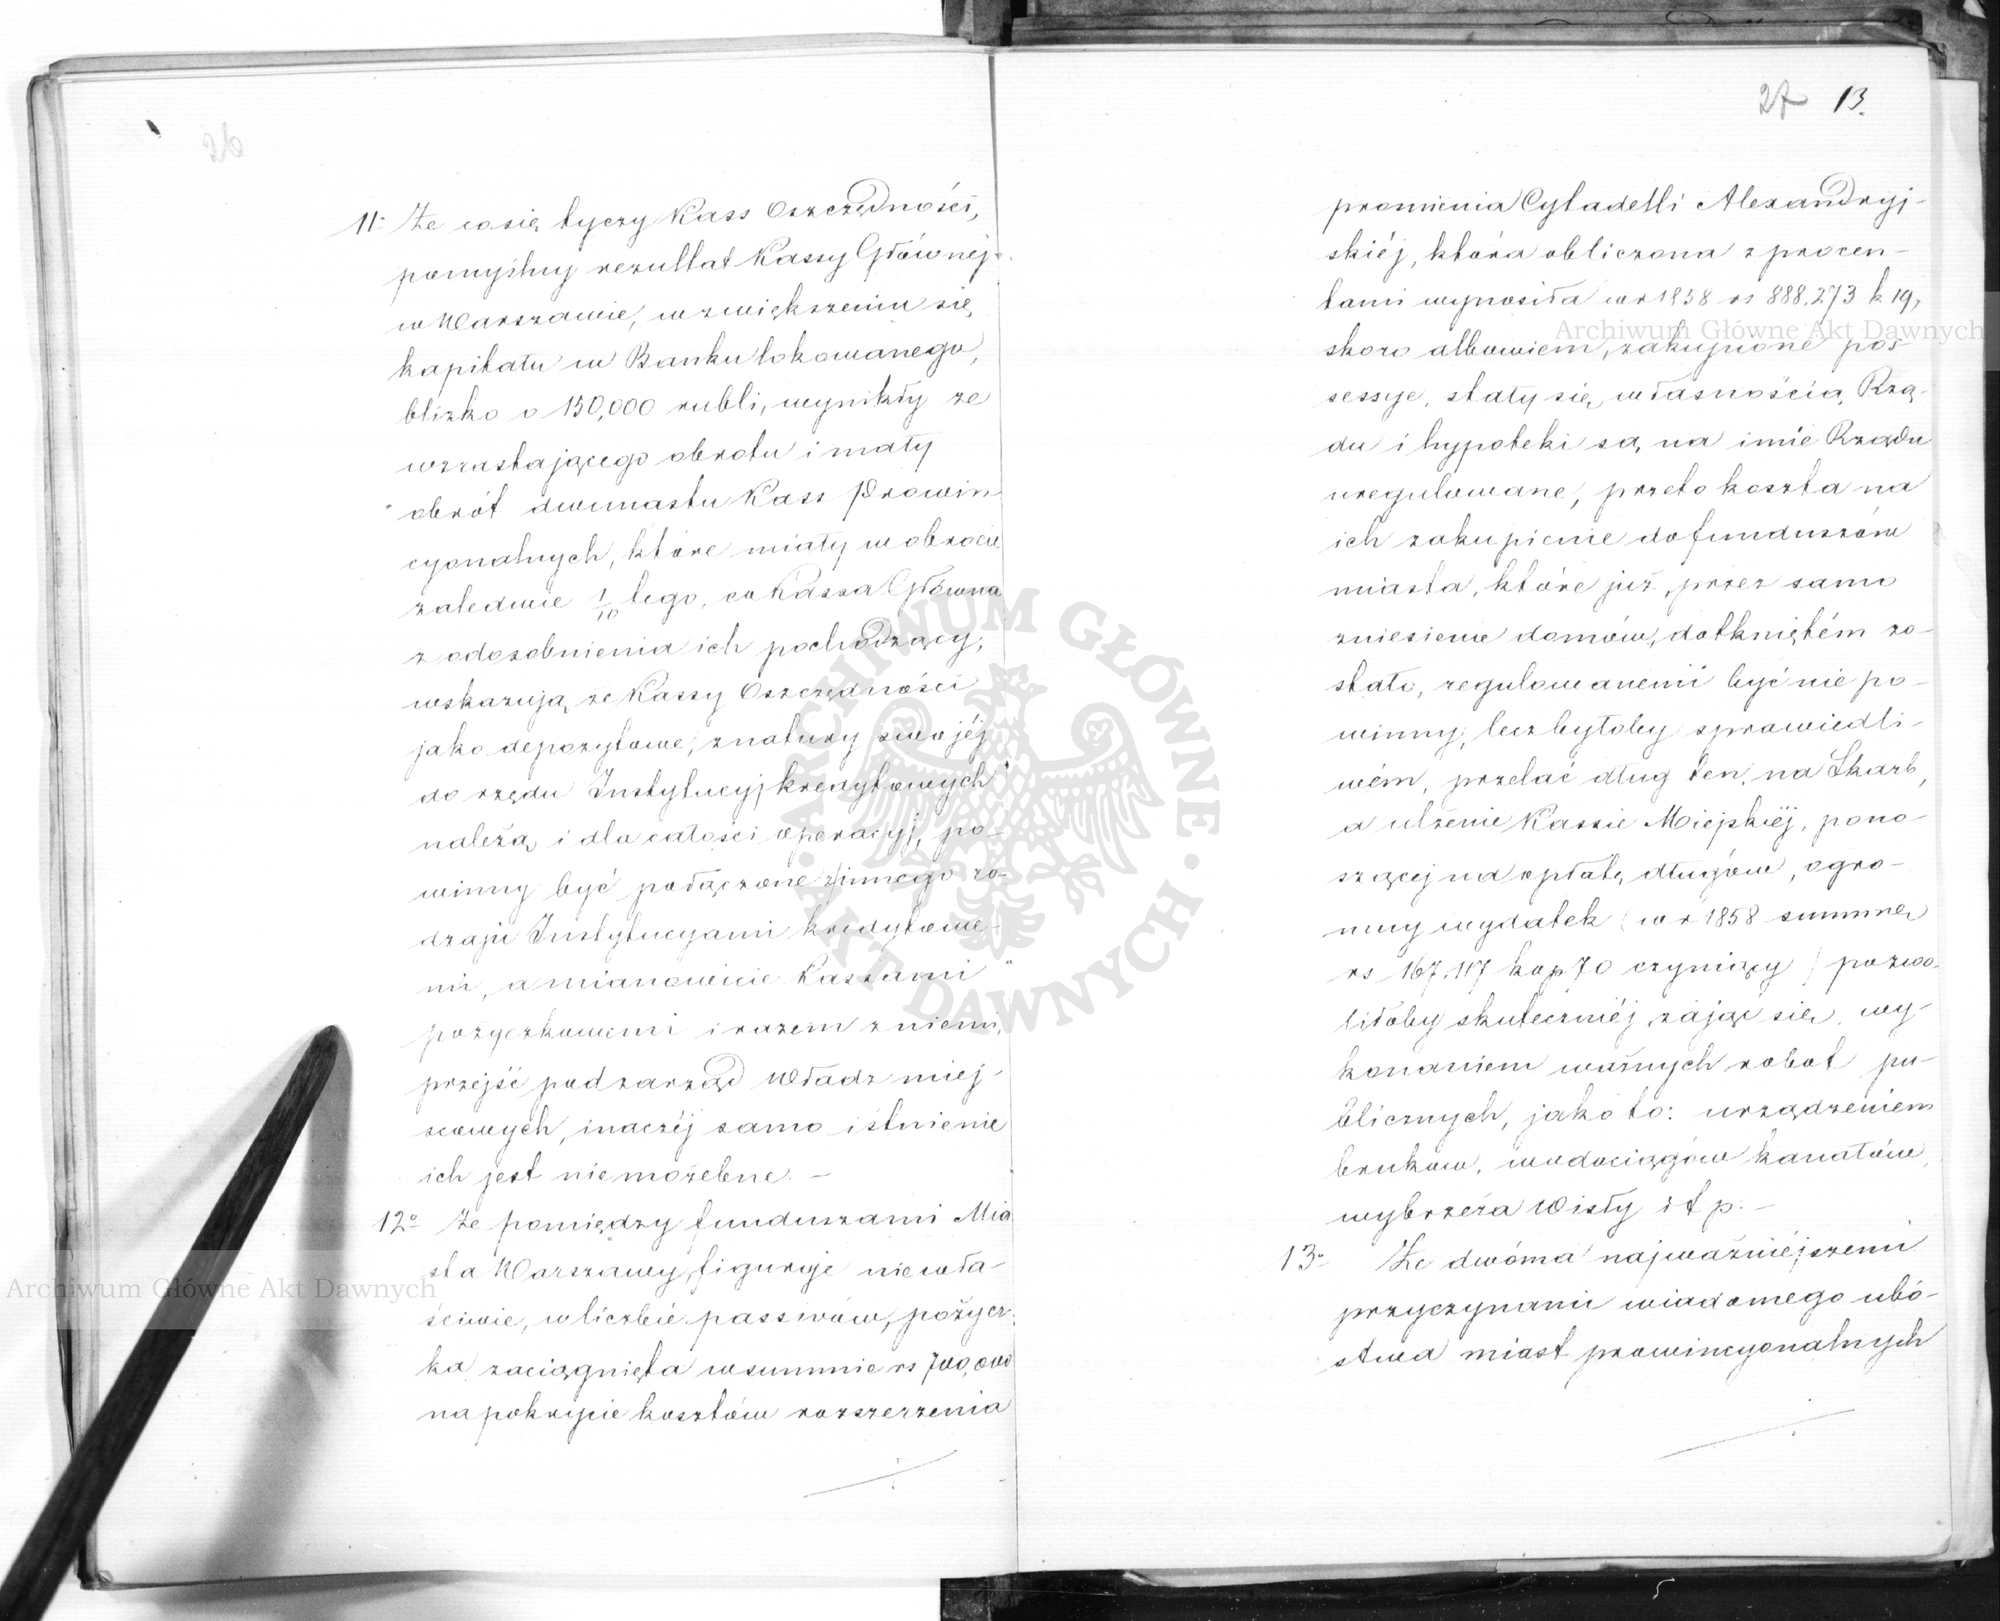 26
11- Że co się tyczy Kass Oszczędności,
pomyślny rezultat Kassy Głównej
w Warszawie, w zwiększeniu się
kapitału w Banku lokowanego,
blizko o 150,000 rubli, wynikły ze
wzrastającego obrotu i mały
obrót dwunastu Kass Prowin
cyonalnych, które miały w obrocie
zaledwie 1/10 tego, co Kassa Główna
z odosobnienia ich pochodzący,
wskazują że Kassy Oszczędności
jako depozytowe, z natury swojéj
do rzędu Instytucyj kredytowych
należą i dla całości operacyj, po-
winny być połączone z innego ro-
dzaju Instytucyami kredytowe-
mi, a mianowicie Kassami
pożyczkowemi i razem z niemi,
przejść pod zarząd Władz miej-
scowych, inaczéj samo istnienie
ich jest niemożebne. —
12o Że pomiędzy funduszami Mia
sta Warszawy, figuruje niewła-
ściwie, w liczbie passivów, pożycz-
ka zaciągnięta w summie rs 700,000
na pokrycie kosztów rozszerzenia
27 13.
promienia Cytadelli Alexandryj-
skiéj, która obliczona z procen-
tami wynosiła w r 1858 rs 888,273 k 19,
skoro albowiem, zakupione pos-
sessye, stały się własnością Rzą-
du i hypoteki są na imie Rządu
uregulowane, przeto koszta na
ich zakupienie do funduszów
miasta, które już przez samo
zniesienie domów, dotkniętém zo-
stało, regulowanemi być nie po-
winny, lecz byłoby sprawiedli-
wém, przelać dług ten, na Skarb,
a ulżenie Kassie Miejskiéj, pono-
szącej na opłatę długów, ogro-
mny wydatek (w r 1858 summę
rs 167.117 kop 70 czyniący) pozwo-
liłoby skuteczniéj zająć się wy-
konaniem ważnych robot pu-
blicznych, jako to: urządzeniem
bruków, wodociągów kanałów,
wybrzeża Wisły i t p. —
13o Że dwóma najważniéjszemi
przyczynami wiadomego ubó-
stwa miast prowincyonalnych
Archiwum Główne Akt Dawnych
Archiwum Główne Akt Dawnych
ARCHIWUM GŁÓWNE AKT DAWNYCH